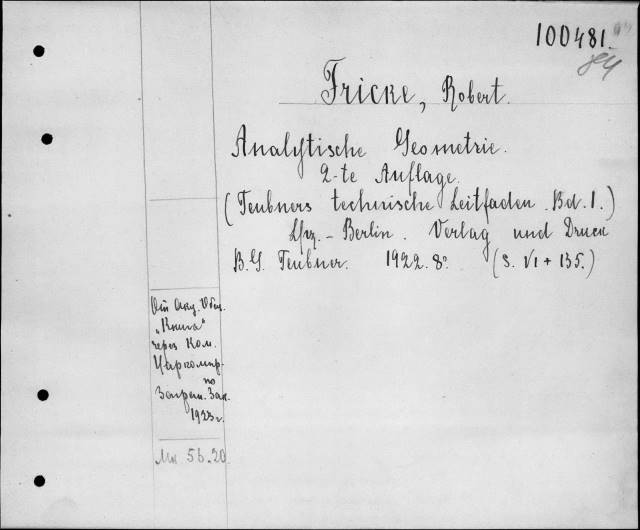 100481.
Fricke, Robert.
Analytische Geometrie.
2-te Auflage.
(Teubners technische Leitfaden. Bd. 1.)
Lpz. - Berlin. Verlag und Druck
B. G. Teubner. 1922. 8º. (S. VI + 135.)
От Акц. Общ.
„Книга"
через Ком.
Наркомпр.
по
Загран. Зак.
1923 г.
Мн 56.20